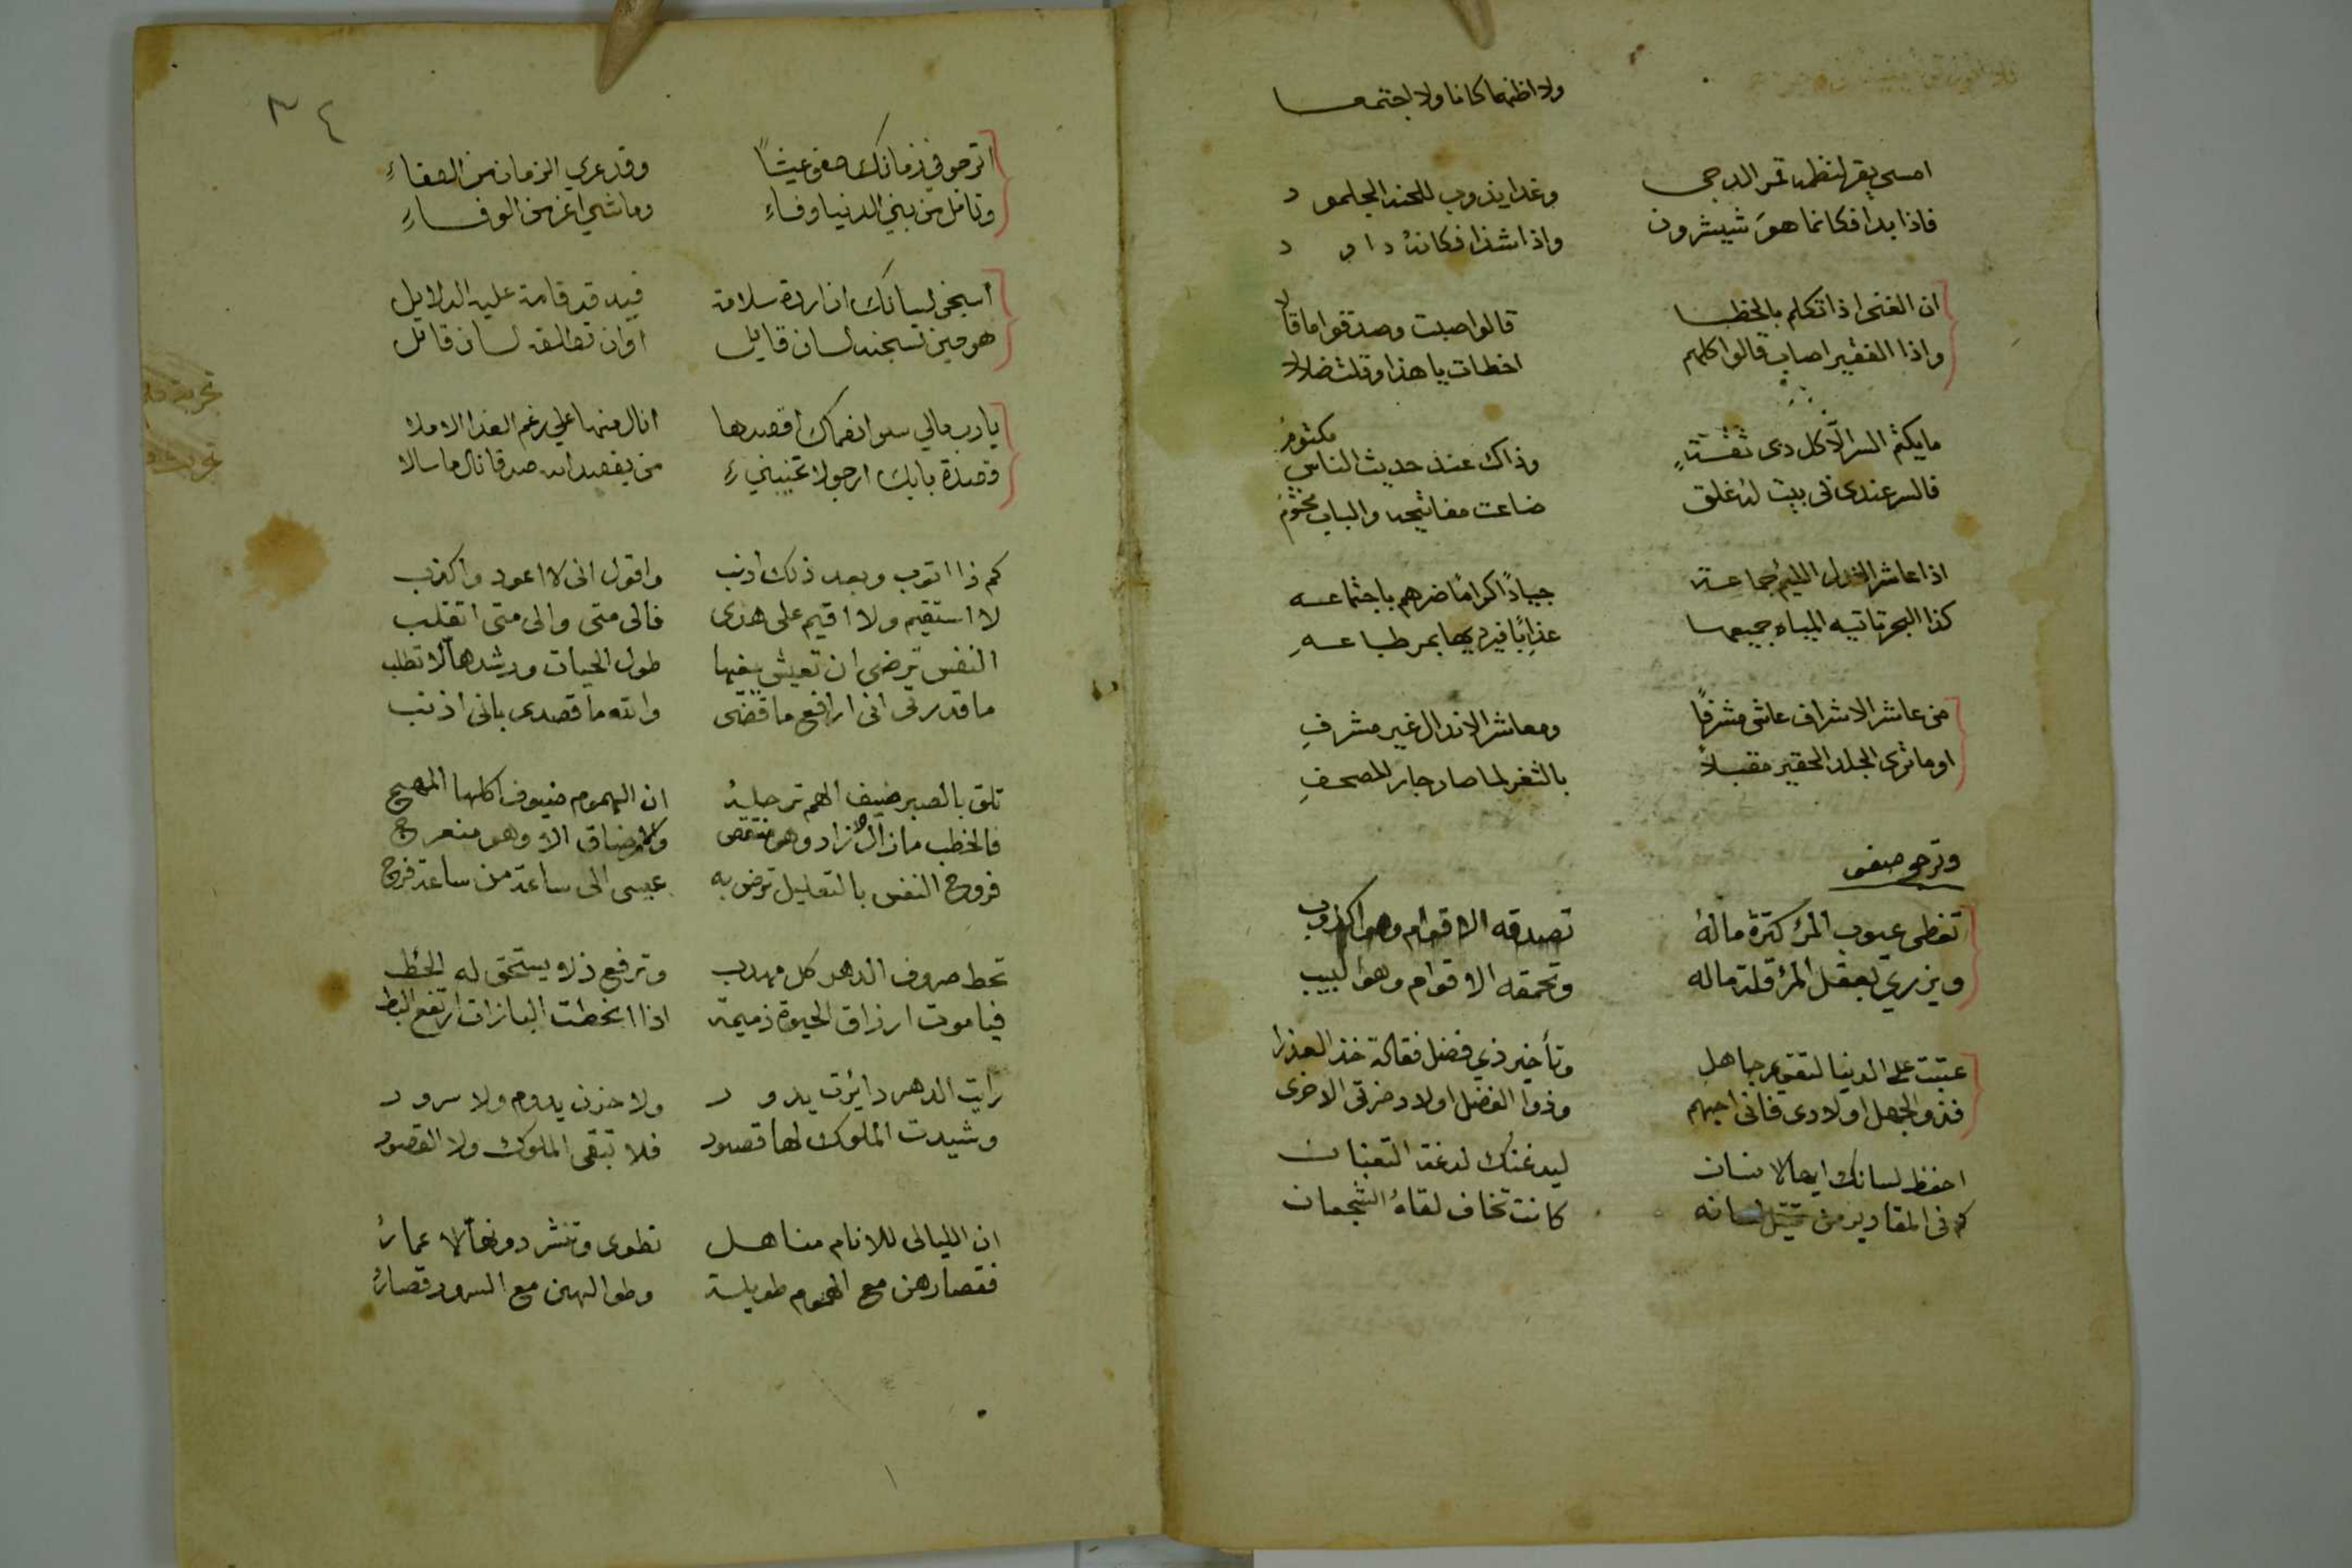 ولا اظنهما كانا ولا اجتمعا
امسى يقر لنظمه قمر الدجى وغدا يذوب للحنه الجلمود
فاذا بدا فكانما هو شيشرون واذا شذا فكانهُ داود
ان الغنى اذا تكلم بالخطا قالوا صبت وصدقوا ما قالا
واذا الفقير اصاب قالوا كلهم اخطات يا هذا وقلت ضلالا
ما يكتم السر الّا كل دى ثقــةٍ وذاك عند حديث الناس مكتومُ
فالسر عندى فى بيت له غلق ضاعت مفاتيحه والباب مختومُ
اذا عاشر النذل اللئيم جماعــة جيادًا كرامًا ضرهم باجتماعــه
كذا البحر تاتيه المياه جميعها عذابًا فيرديها بمر طباعــهِ
من عاشر الاشراف عاش مشرفًا ومعاشر الاندال غير مشرفِ
اوما ترى الجلد الحقير مقبلاً بالثغر لما صار جار المصحفِ
وترجح صفى
تغطى عيوب المرُ كثرة مالهُ تصدقه الاقوام وهو اكذوب
ويزري بعقل المرُ قلة ماله وتحمقه الاقوام وهو لبيب
عتبت على الدنيا لتقديم جاهل وتأخير ذي فضل فقالة خذ العذرا
فذو الجهل اولادى فانى احبهم وذوا الفضل اولاد ضرتى الاخرى
احفظ لسانك ايها الانسان ليدغنك لدغة الثعبان
كم فى المقابر من قتيل لسانه كانت تخاف لقاهُ الشجعان
٣٤
اترجو في زمانك صفو عيشًا وقد عري الزمان من الصفاءِ
وتامل من بني الدنيا وفاءِ وما شي اعز من الوفــاءِ
اسجن لسانك ان اردة سلامة فيه قد قامة عليه الدلايل
هو حين تسجنه لسان قايل اوان تطلقه لسان قاتل
يا رب مالي سوا نعماك اقصدها انال منها على رغم العدا الاملا
قصدة بابك ارجو لا تخيبني من يقصد الله صدقا نال ما سالا
كم ذا اتوب وبعد ذلك اذنب واقول انى لا اعود واكذب
لا استقيم ولا اقيم على هدى فالى متى والى متى اتقلب
النفس ترضى ان تعيش بغيها طول الحيات ورشدها لا تطلب
ما قدرتى انى ارافع ما قضى والله ما قصدى بانى اذنب
تلق بالصبر ضيف الهم ترحلهُ ان الهموم ضيوف اكلها المهج
فالخطب مازال الا زاد وهو منتقص والامر ضاق الا وهو منعرج
فروح النفس بالتعليل ترض به عيسى الى ساعة من ساعة فرج
تحط صروف الدهر كل مهدب وترفع نذلا يستحق له الخط
فيا موت ارزاق الحيوة ذميمة اذا انخطت البازات ارتفع البط
رايت الدهر دايرة يدور ولا حزن يدوم ولا سرور
وشيدت الملوك لها قصور فلا تبقى الملوك ولا القصور
ان الليالى للانام مناهــل تطوى وتنشر دونها الاعمارُ
فقصارهن مع الهموم طويلــة وطوالهن مع السرور قصارُ